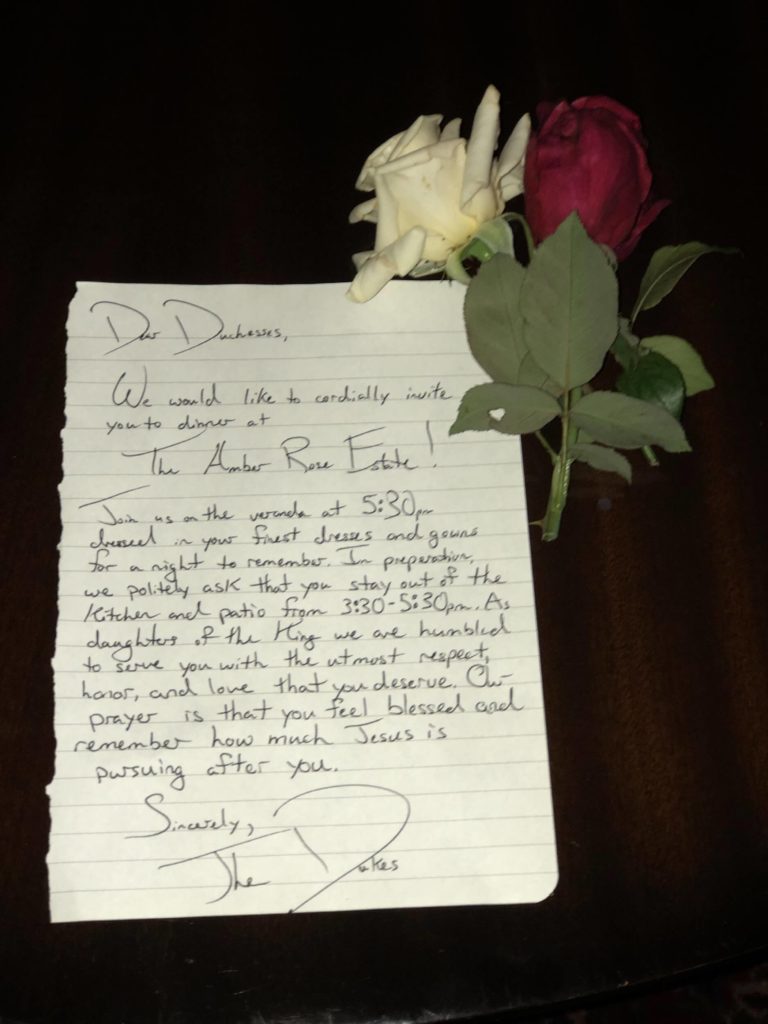 Dear Duchesses,
We would like to cordially invite
you to dinner at
The Amber Rose Estate!
Join us on the veranda at 5:30pm
dressed in your finest dresses and gowns
for a night to remember. In preparation,
we politely ask that you stay out of the
Kitchen and patio from 3:30-5:30pm. As
daughters of the King we are humbled
to serve you with the utmost respect,
honor, and love that you deserve. Our
prayer is that you feel blessed and
remember how much Jesus is
pursuing after you.
Sincerely,
The Dukes